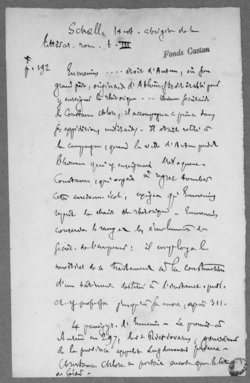 Schœll, Hist. abrégée de la
littérat. rom. t. III
Fonds Castan
p. 192
Eumenius ... était d'Autun, où son
grand père, originaire d'Athènes, s'était établi pour
y enseigner la rhétorique
Constance Chlore, il accompagna ce prince dans
ses expéditions militaires. Il était retiré à
la campagne, quand la ville d'Autun perdit
l'homme qui y enseignait
Constance, qui voyait à regret tomber
cette ancienne école, exigea qu'Eumenius
reprît la chaire de rhétorique. Eumenius
conserva le rang et les émoluments de
secrét. de l'empereur; il employa la
moitié de ce traitement à la construction
d'un bâtiment destiné à l'enseigne. publ.
et y professa jusqu'à sa mort, après 311.
4 panégyr. d'Eumenius. Le premier
Autun en 297, devant Rictiovarus, gouverneur
de la province appelée Lugdunensis prima.
Constance Chlore